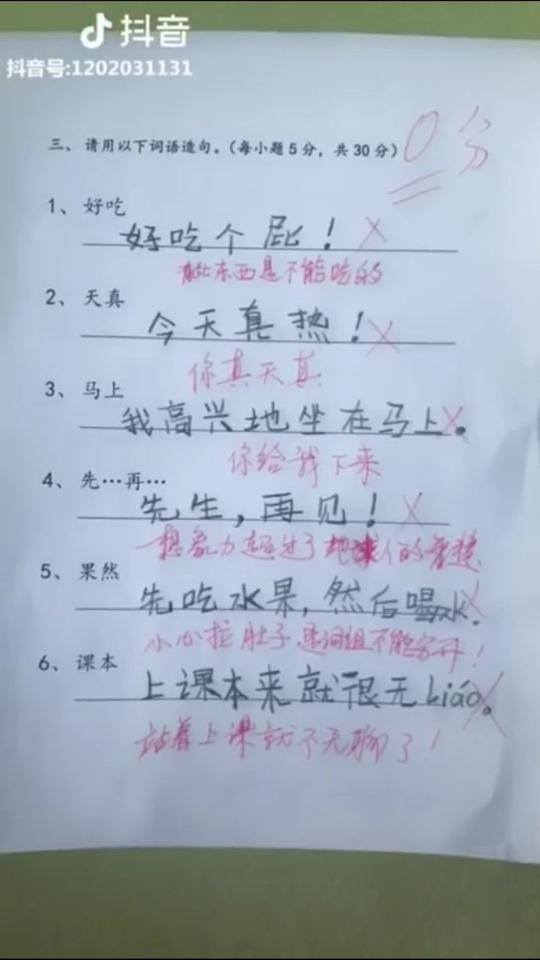 抖音
抖音号:1202031131
三、请用以下词语造句。(每小题5分，共30分)
0分
1、好吃
好吃个屁！
有些东西是不能吃的
2、天真
今天真热！
你真天真
3、马上
我高兴地坐在马上。
你给我下来
4、先…再…
先生，再见！
想象力超过了地球人的智慧
5、果然
先吃水果，然后喝水.
小心拉肚子 是词组不能分开！
6、课本
上课本来就很无liáo。
站着上课就不无聊了！